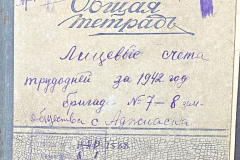 Общая
тетрадь
Лицевые счета
трудодней за 1942 год
бригад № 7-8 им.
общества с